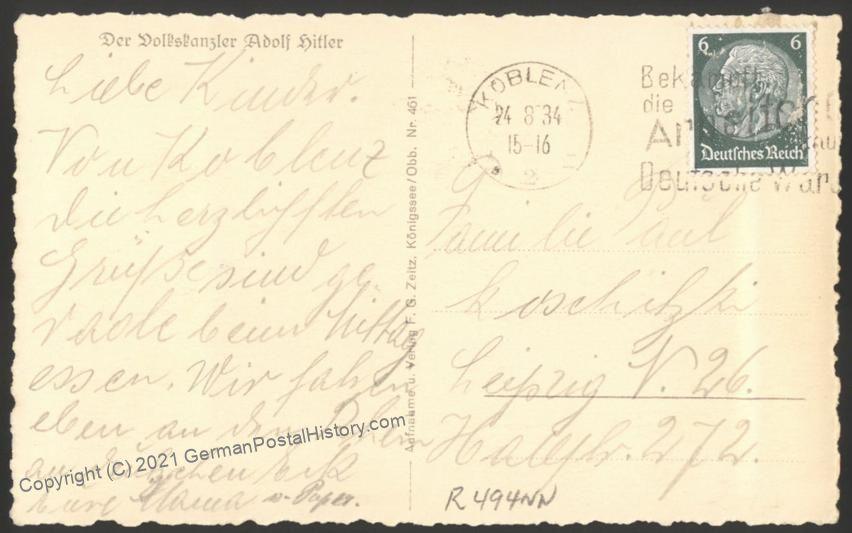 Der Volkskanzler Adolf Hitler
Liebe Kinder.
Von Koblenz
die herzlichsten
Grüße sind ge-
rade beim Mittag
essen. Wir fahren
eben an den
Eure Mama u. Papa.
Aufnahme u. Verlag F. G. Zeitz, Königssee/Obb. Nr. 461
KOBLENZ
24 8 34
15-16
2
Bekämpft
die
Deutsche War
6 6
Deutsches Reich
Familie Paul
Koschitzki
Leipzig N. 26.
272.
R 494NN
Copyright (C) 2021 GermanPostalHistory.com